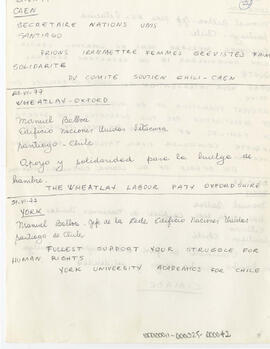 CAEN
SECRETAIRE NATIONS UNIS
SANTIAGO
PRIONS TRANSMETTRE FEMMES GREVISTES FAIM
SOLIDARITE
DU COMITE SOUTIEN CHILI-CAEN
WHEATLAY-OXFORD
Manuel Balboa
Edificio Naciones Unidas Vitacura
Santiago - Chile
Apoyo y solidaridad para la huelga de
hambre.
THE WHEATLAY LABOUR PATY OXFORDSHIRE
YORK
Manuel Balboa - Jefe de la Sede Edificio Naciones Unidas
Santiago de Chile
FULLEST SUPPORT YOUR STRUGGLE FOR
HUMAN RIGHTS
YORK UNIVERSITY ACADEMICS FOR CHILE